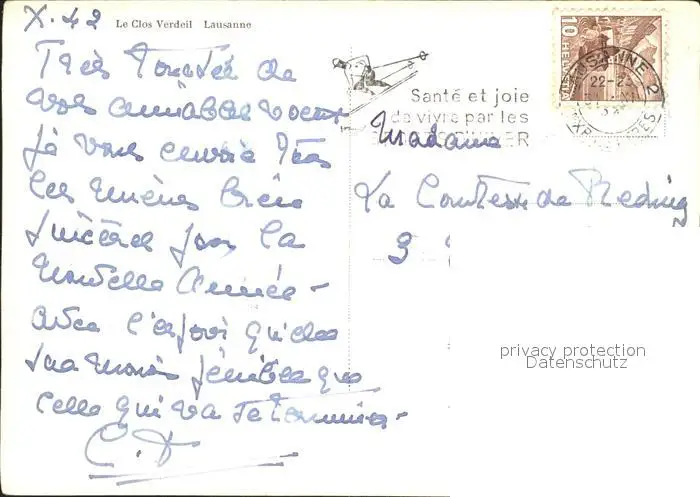 X. 42
Le Clos Verdeil Lausanne
Très Touchée de
vos aimables voeux
je vous envoie Très
les miens bien
sincères pour la
Nouvelle Année -
avec l'espoir qu'elle
sera moins pénible que
celle qui va se terminer -
C.D
Santé et joie
de vivre par les
HELVETIA
10
LAUSANNE 2
22-
EXP. LETTRES
Madame
La Comtesse de Reding
privacy protection
Datenschutz